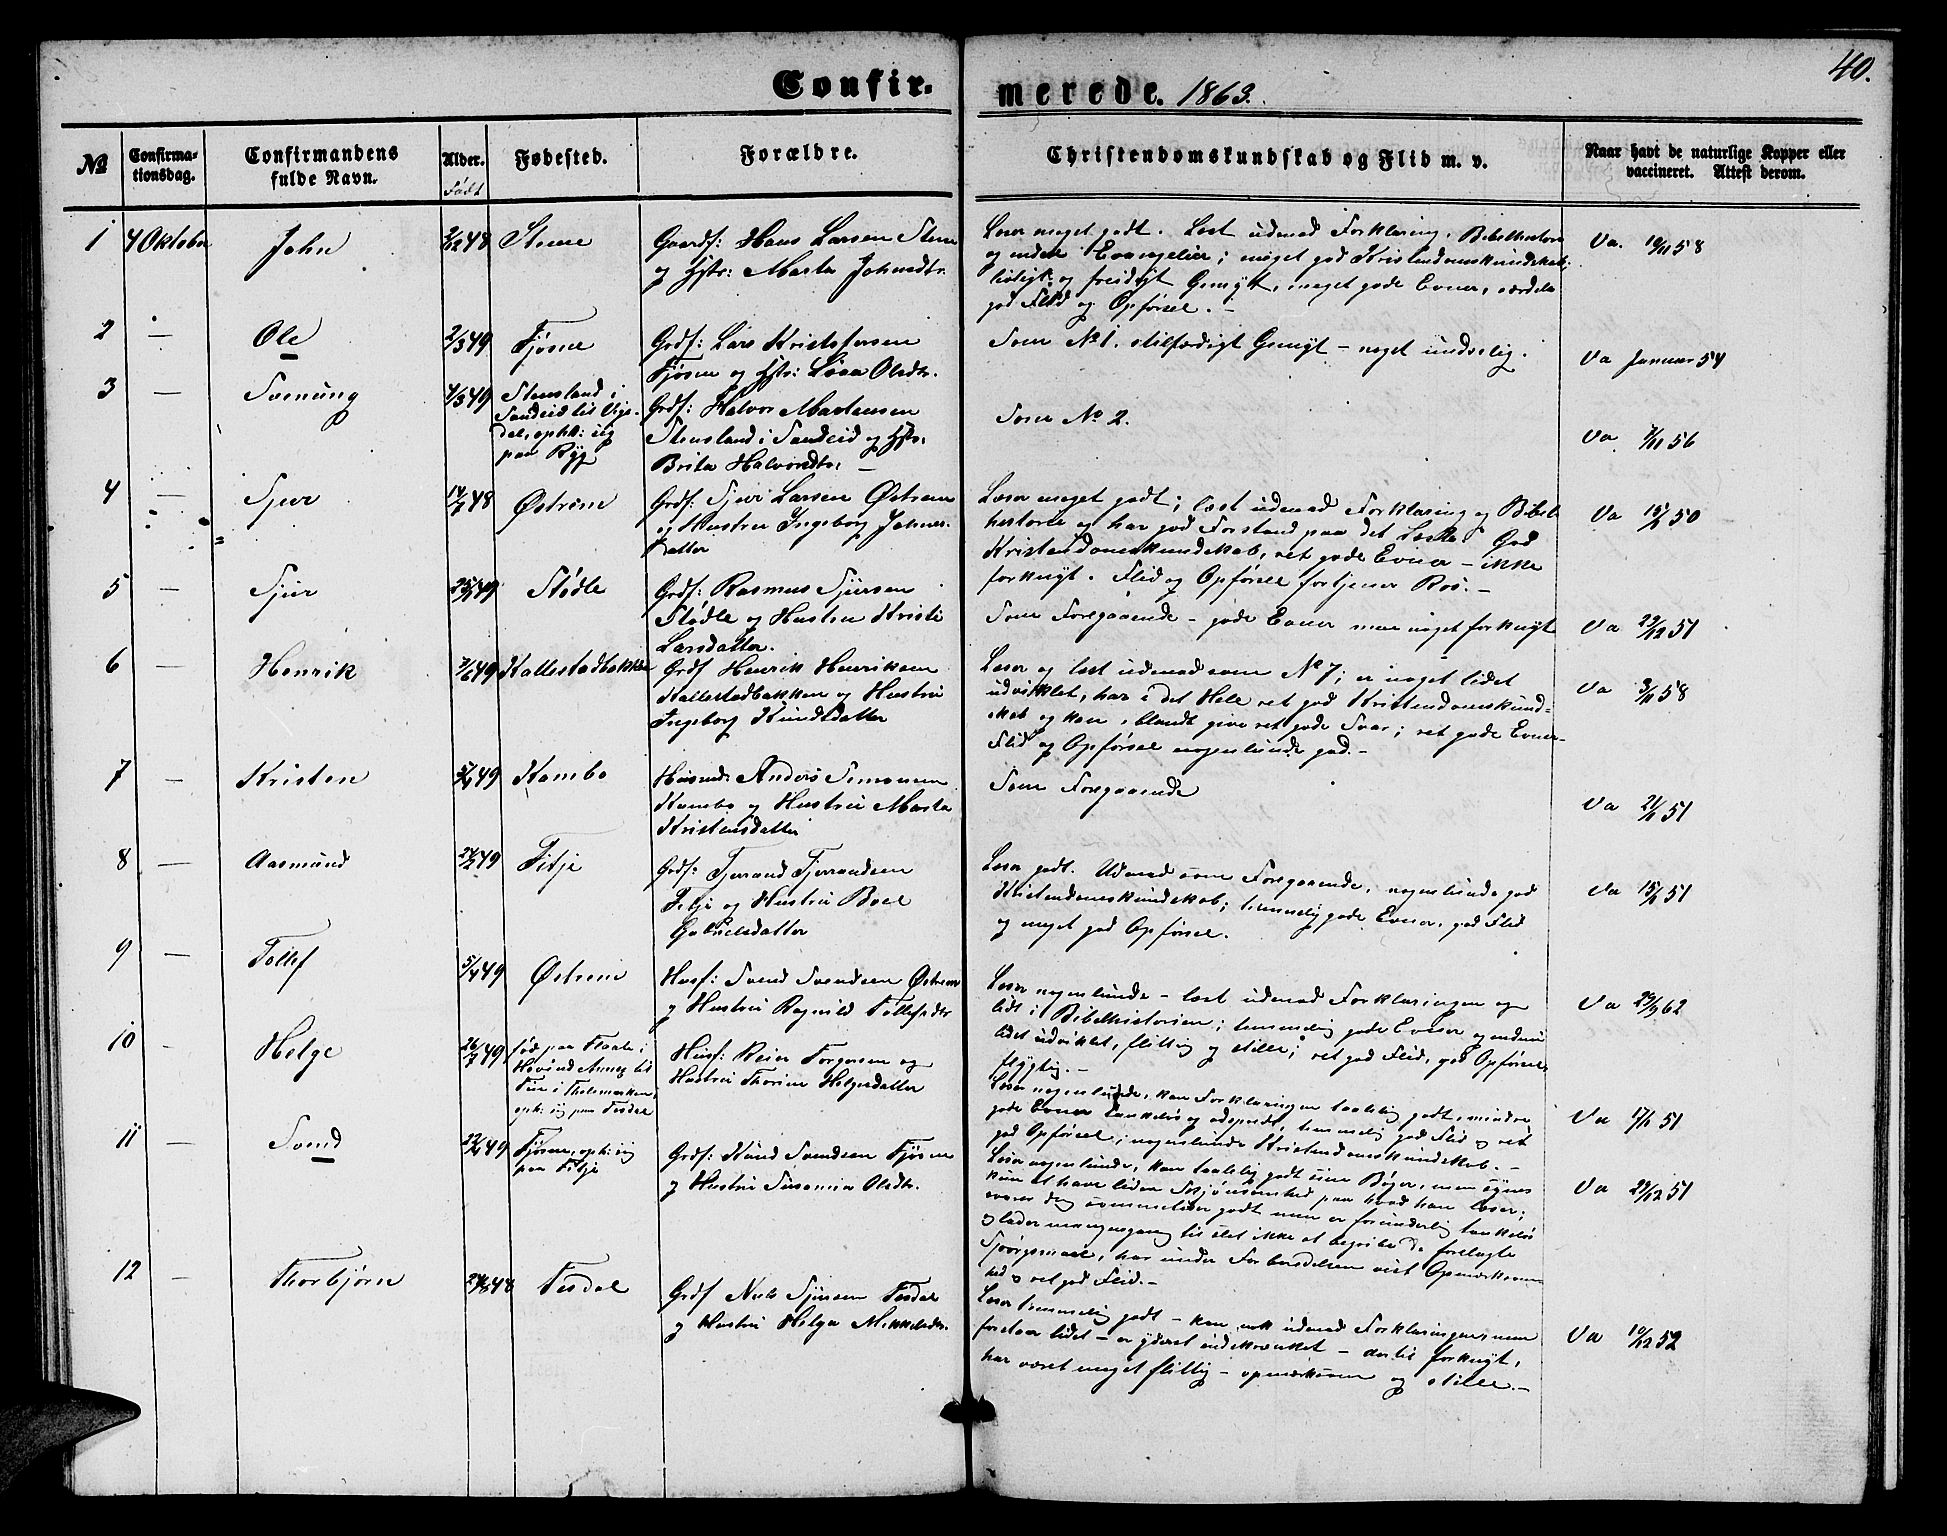 40.
Confir-
merede. 1863.
No
Confirma-
tionsdag.
Confirmandens
fulde Navn.
Alder.
Født
Fødested.
Forældre.
Christendomskundskab og Flid m. v.
Naar havt de naturlige Kopper eller
vaccineret. Attest derom.
1 4 Oktober John 48 Stene
Gaardf: Hans Larsen Stene
og Hstr: Marta Johnsdtr.
Læser meget godt. Læst udenad Forklaring, Bibelhistorie
og endel Evangelier; meget god Kristendomskundskab;
livligt og freidigt Gemyt, meget gode Evner, særdeles
god Flid og Opførsel. -
Va. 19/11 58
2 — Ole 2/3 49 Fjøsne
Grdf: Lars Kristofersen
Fjøsne og Hstr: Lisa Olsdtr.
Som No 1. stilfærdigt Gemyt - noget undselig.
Va Januar 54
3 — Svenung 4/3 49
Stensland i
Sandeid til Vige-
dal, oph: sig
paa Ryg
Grdf: Halvor Mortensen
Stensland i Sandeid og Hstr:
Brita Halvorsdtr. —
Som No 2.
Va 7/11 56
4 — Sjur 14/7 48 Østrem
Grdf: Sjur Larsen Østrem
og Hustru Ingeborg Johnes-
datter
Læser meget godt; læst udenad Forklaring og Bibel-
historie og har god Forstand paa det Læste. God
Kristendomskundskab, ret gode Evner - ikke
forknyt. Flid og Opførsel fortjener Ros. -
Va 50
5 — Sjur 49 Stødle
Grdf: Rasmus Sjursen
Stødle og Hustru Kristi
Larsdatter.
Som Foregaaende - gode Evner men noget forknyt
Va 23/12 51
6 — Henrik 49 Kallestadbakken
Grdf Henrik Henriksen
Kallestadbakken og Hustru
Ingeborg Knudsdatter
Læser og læst udenad som No 7; er noget lidet
udviklet, har i det Hele ret god Kristendomskund-
skab og kan iblandt give ret gode Svar; ret gode Evner -
Flid og Opførsel nogenlunde god. -
Va 3/11 58
7 — Kristen 49 Kambo
Husmd: Anders Simonsen
Kambo og Hustru Marta
Kristensdatter
Som Foregaaende
Va 51
8 — Aasmund 49 Fitje
Grdf: Tjerand Tjerandsen
Fitje og Hustru Boel
Gabrielsdatter
Læser godt. Udenad som Foregaaende, nogenlunde god
Kristendomskundskab; temmelig gode Evner, god Flid
og meget god Opførsel.
Va 51
9 — Tollef 5/4 49 Østrem
Husf: Svend Svendsen Østrem
og Hustru Ragnild Tollefsdtr
Læser nogenlunde - læst udenad Forklaringen og
lidt i Bibelhistorien; temmelig gode Evner og endnu
lidet udviklet, flittig og stille; ret god Flid, god Opførsel,
flygtig. -
Va 29/9 62
10 Helge 26/7 49
fød paa
i
til
i Thelemarken,
oph: sig paa Tesdal
Husf: Reier Torgersen og
Hustru Thorine Helgesdatter
Læser nogenlunde, kan Forklaringen taalelig godt, mindre
gode Evner tankeløs og adspredt, temmelig god Flid og ret
god Opførsel; nogenlunde Kristendomskundskab. -
Va 51
11 — Svend 49
Fjøsne, oph: sig
paa Fitje
Grdf: Knud Svendsen Fjøsne
og Hustru Susanna Olsdtr.
Læser nogenlunde, kan taalelig godt sine Bøger, men synes
kun at have liden Skjønsomhed paa hvad han læser;
svarer dog sommetider godt men er forunderlig tankeløs
og lader mangengang til slet ikke at begribe de forelagte
Spørgsmaal, har under Forberedelsen vist Opmærksom-
hed og ret god Flid. -
Va 29/12 51
12 — Thorbjørn 48 Tesdal
Grdf Nils Sjursen Tesdal
og Hustru Helga Mikkelsdtr.
Læser temmelig godt - kan nok udenad Forklaringen men
forstaar lidet - er yderst indskrænket - dertil forknyt,
har været meget flittig - opmærksom og stille. -
Va 10/12 52